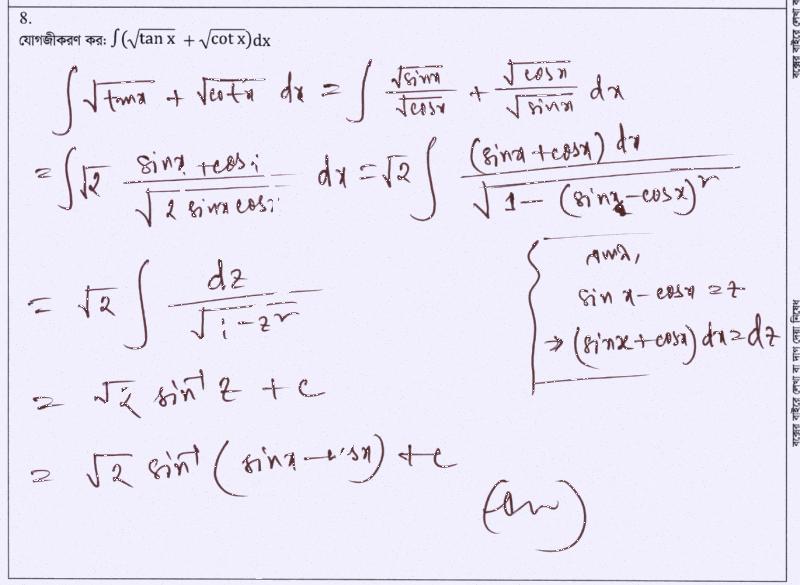 8.
যোগজীকরণ কর: ∫(√tan x + √cot x)dx
∫ √tanx + √cotx dx = ∫ √sinx/√cosx + √cosx/√sinx dx
= ∫ √2 (sinx + cosx)/√(2 sinx cosx) dx = √2 ∫ (sinx + cosx) dx/√(1 − (sinx − cosx)²)
= √2 ∫ dz/√(1 − z²)
sin x − cosx = z
⇒ (sinx + cosx) dx = dz
= √2 sin⁻¹ z + c
= √2 sin⁻¹ (sinx − cosx) + c
(Ans)
বক্সের বাইরে লেখা বা দাগ দেয়া নিষেধ